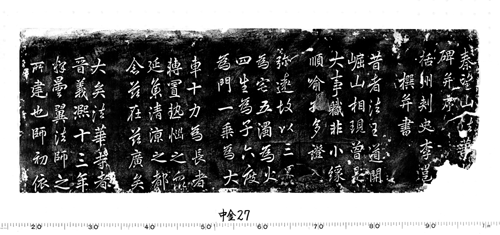 秦望山法華寺
碑并序
括州刺史李邕
撰并書
昔者法王道開
崛山相現曾
大事職非小緣
順喻孔多證入
彌遠故以三
為宅五濁為火
四生為子六度
為門一乘為大
車十力為長者
轉置熱惱之
延集清涼之都
念茲在茲廣矣
大矣法華寺者
晉義熙十三年
釋曇翼法師之
所建也師初依
中金27
2.0 3.0 4.0 5.0 6.0 7.0 8.0 9.0